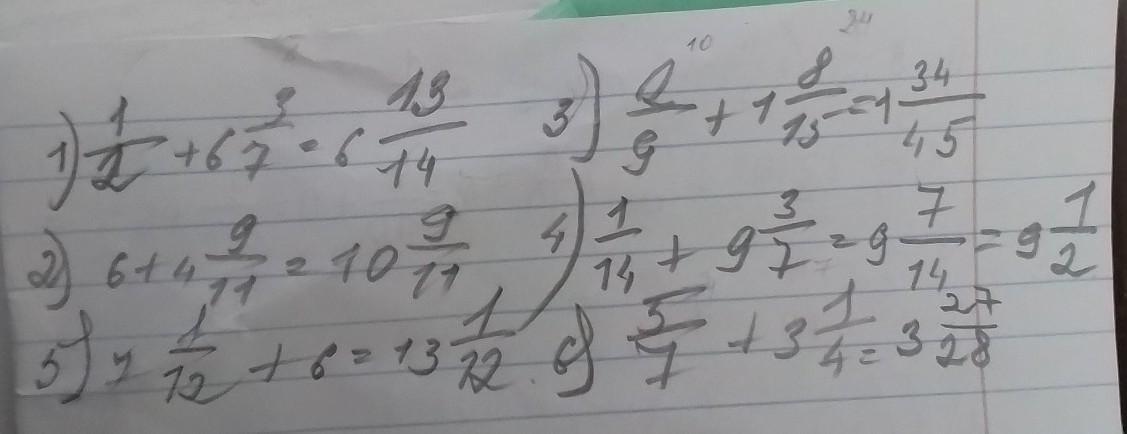 10 24
1) 1/2 + 6 3/7 = 6 13/14 3) 2/9 + 1 8/15 = 1 34/45
2) 6 + 4 9/11 = 10 9/11 4) 1/14 + 9 3/7 = 9 7/14 = 9 1/2
5) 7 1/12 + 6 = 13 1/12. 6) 5/7 + 3 1/4 = 3 27/28